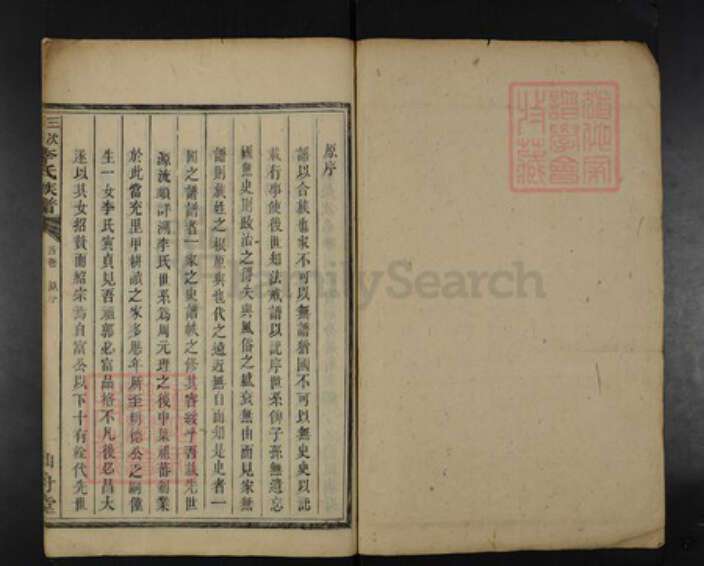 原序
譜以合族也家不可以無譜猶國不可以無史史以記
載行事使後世知法戒譜以記序世系俾子孫無遺忘
國無史則政治之得失與風俗之盛衰無由而見家無
譜則族姓之根原與世代之遠近無自而知是史者一
國之譜譜者一家之史譜牒之修其容緩乎吾族先世
源流頗詳溯李氏世系為周元理之後中葉
於此當充里甲耕讀之家多歷年所至
生一女李氏 貞見吾 郭必富品格不凡後必昌大
遂以其女招贅而 宗為自富公以下十有 代先世
三 李氏族譜
首卷 原序
堂
FamilySearch